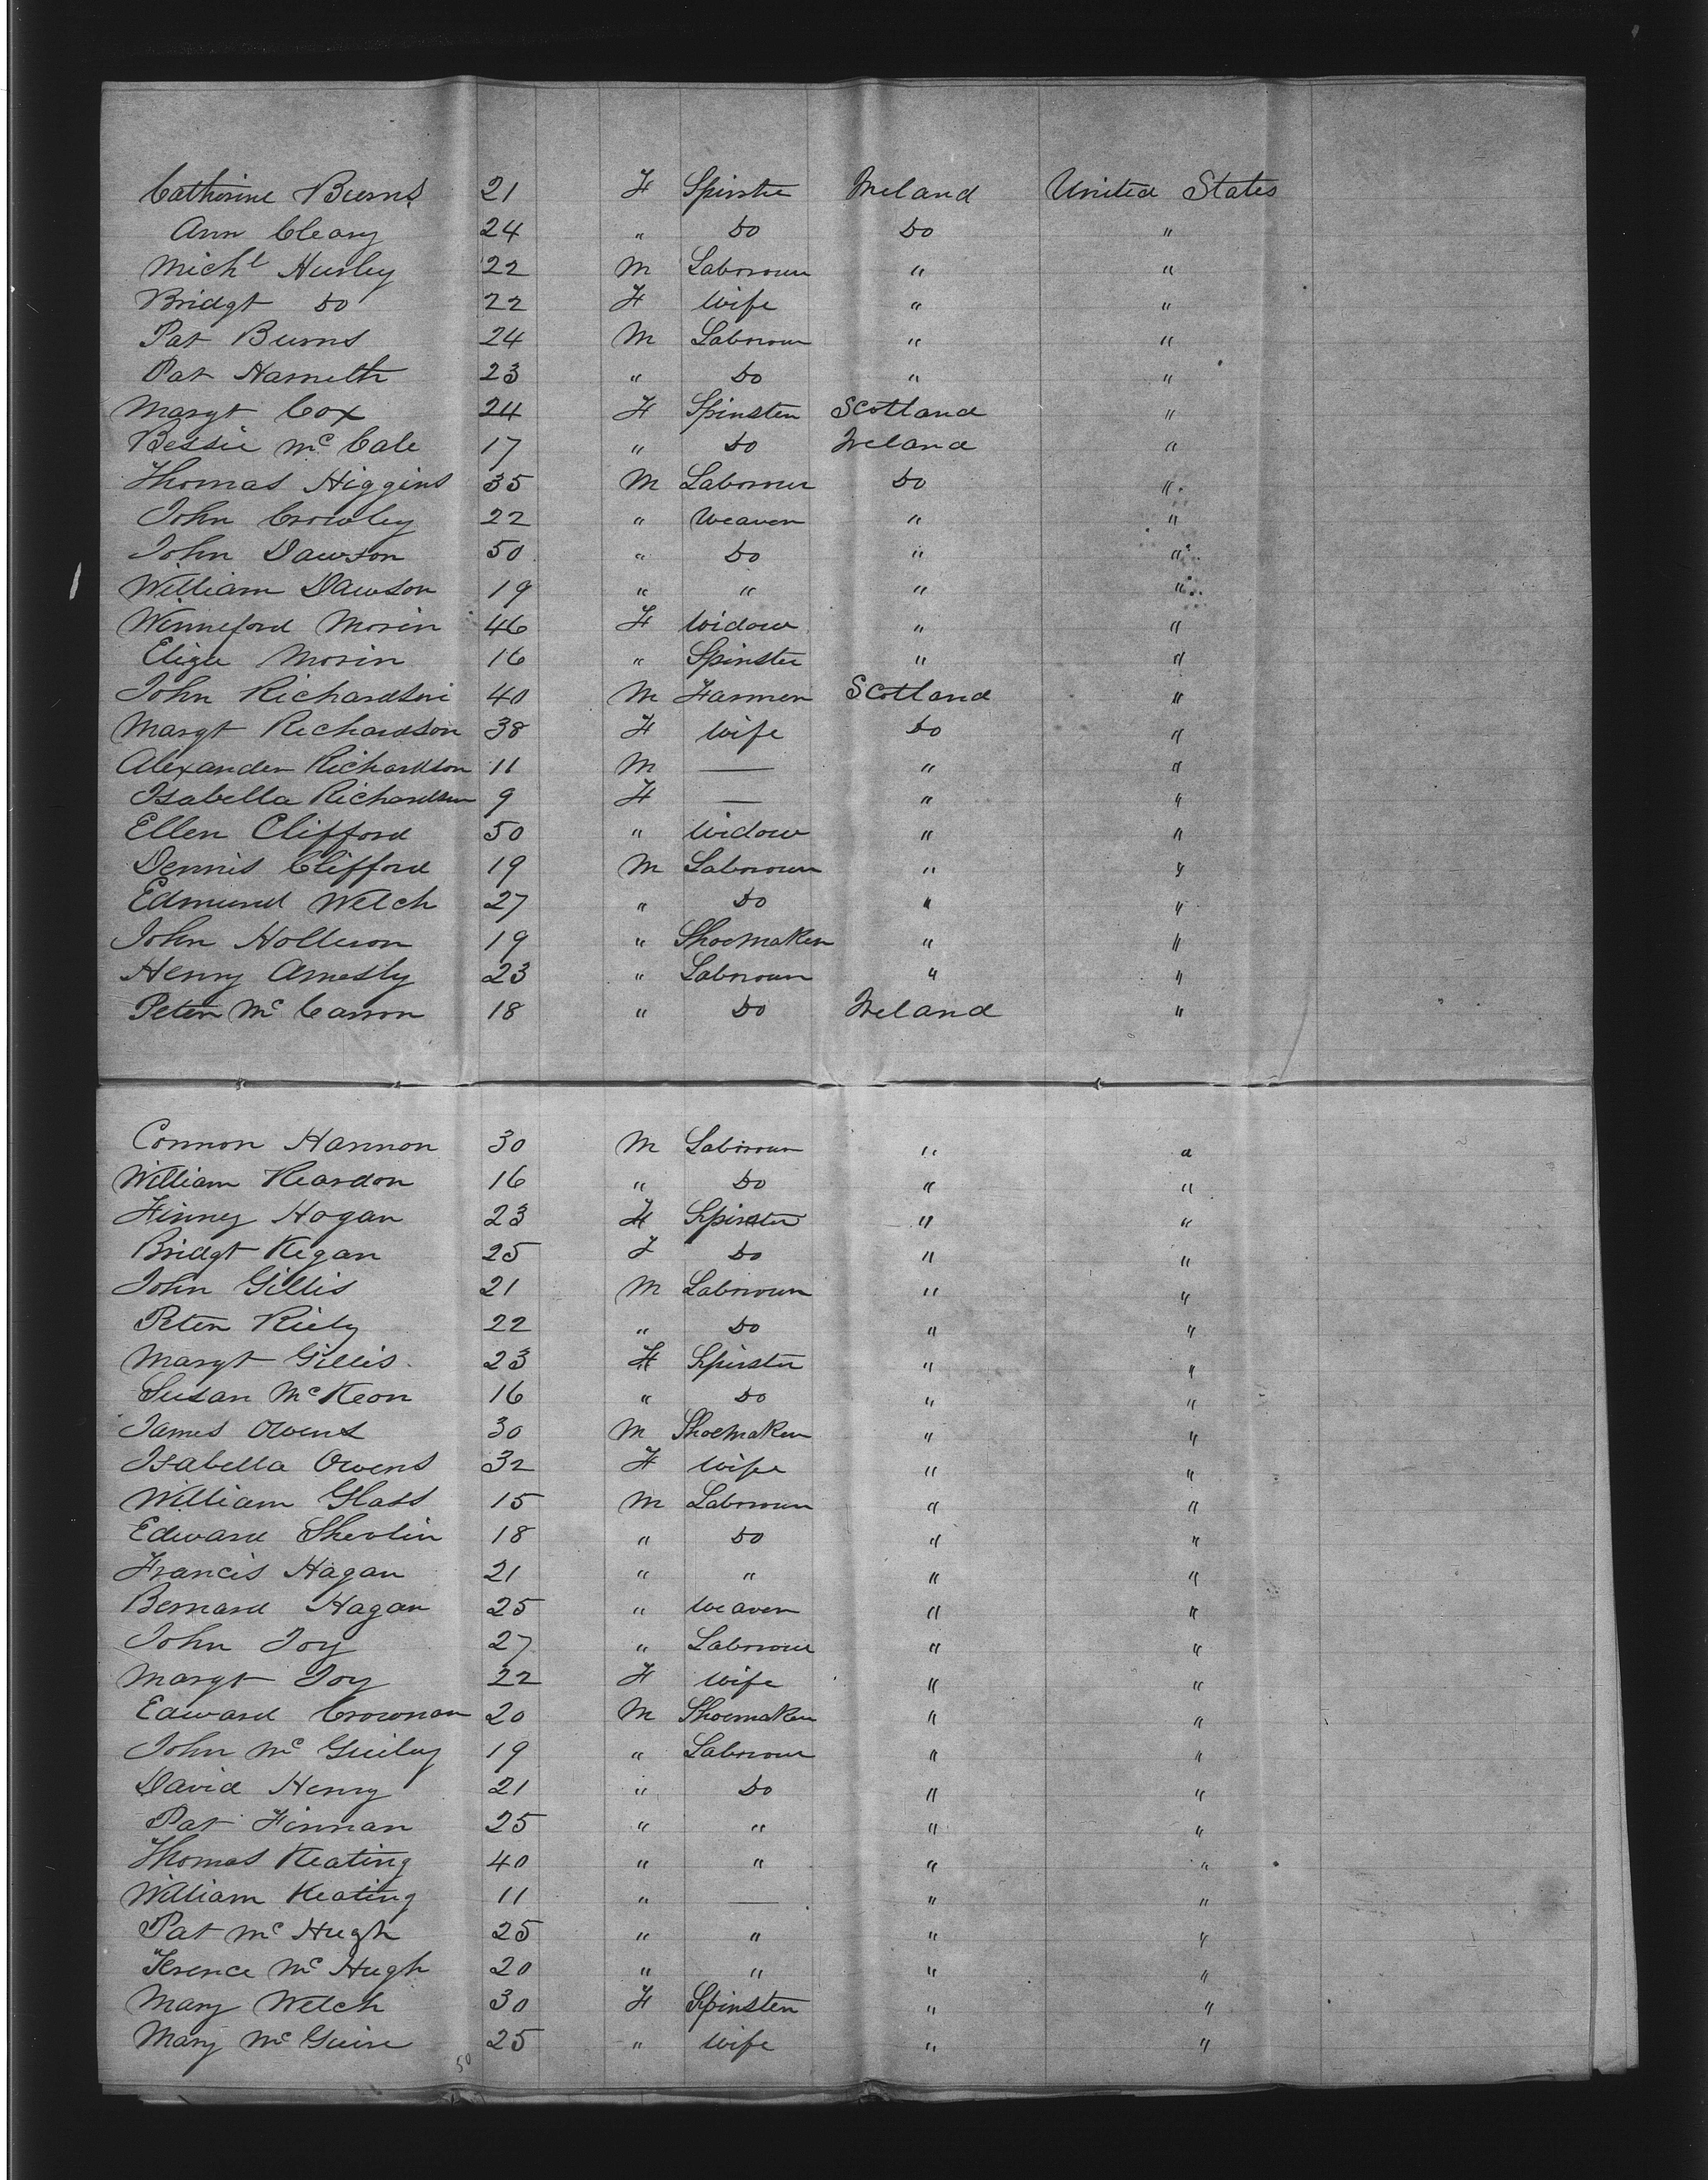 Catherine Burns 21 F Spinster Ireland United States
Ann Cleary 24 " Do Do "
Michl Hurley 22 M Labourer " "
Bridgt Do 22 F Wife " "
Pat Burns 24 M Labourer " "
Pat 23 " Do " "
Margt Cox 24 F Spinster Scotland "
Bessie Mc Cale 17 " Do Ireland "
Thomas Higgins 35 M Labourer Do "
John Crowley 22 " Weaver " "
John Dawson 50 " Do " "
William Dawson 19 " " " "
Winneford Morin 46 F Widow " "
Eliza Morin 16 " Spinster " "
John Richardson 40 M Farmer Scotland "
Margt Richardson 38 F Wife Do "
Alexander Richardson 11 M — " "
Isabella Richardson 9 F — " "
Ellen Clifford 50 " Widow " "
Dennis Clifford 19 M Labourer " "
Edmund Welch 27 " Do " "
John 19 " Shoemaker " "
Henry 23 " Labourer " "
Peter Mc 18 " Do Ireland "
Connon Hannon 30 M Labourer " "
William Reardon 16 " Do " "
Finney Hogan 23 F Spinster " "
Bridgt Kegan 25 F Do " "
John Gillis 21 M Labourer " "
Peter Riely 22 " Do " "
Margt Gillis 23 F Spinster " "
Susan McKeon 16 " Do " "
James Owens 30 M Shoemaker " "
Isabella Owens 32 F Wife " "
William Glass 15 M Labourer " "
Edward Shevlin 18 " Do " "
Francis Hagan 21 " " " "
Bernard Hagan 25 " Weaver " "
John Joy 27 " Labourer " "
Margt Joy 22 F Wife " "
Edward Crownan 20 M Shoemaker " "
John Mc 19 " Labourer " "
David Henry 21 " Do " "
Pat Finnan 25 " " " "
Thomas Keating 40 " " " "
William Keating 11 " — " "
Pat Mc Hugh 25 " " " "
Terence Mc Hugh 20 " " " "
Mary Welch 30 F Spinster " "
Mary Mc Guire 25 " Wife " "
50